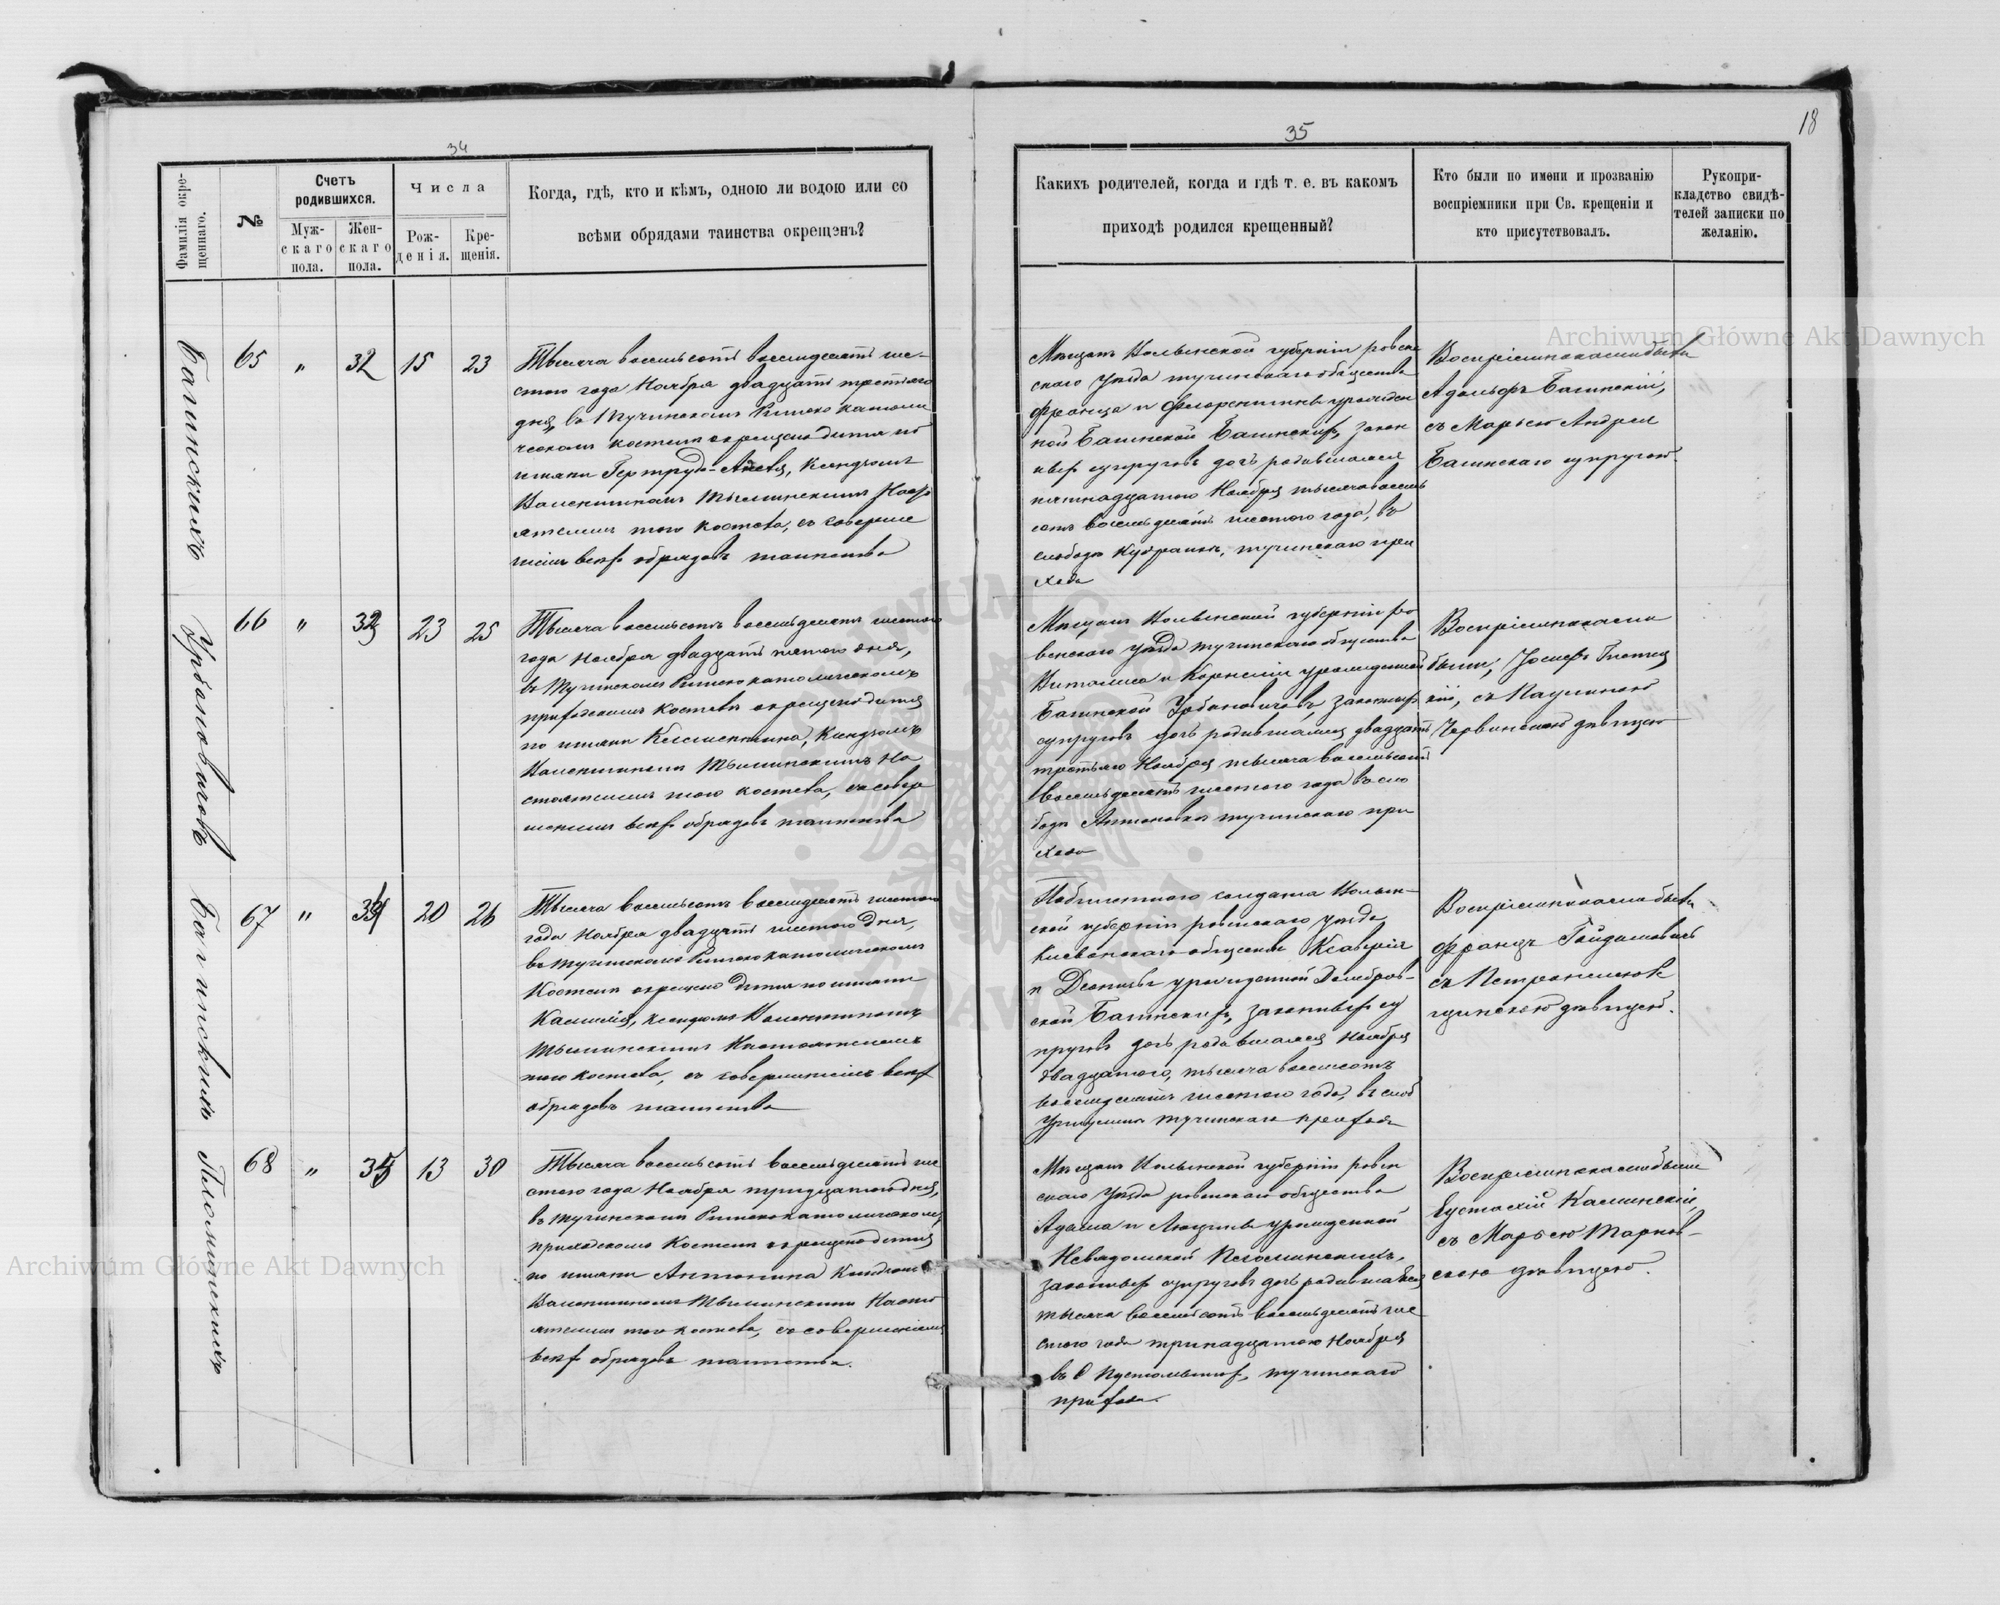 34
Фамилія окре-
щеннаго.
№
Счетъ
родившихся.
Муж-
скаго
пола.
Жен-
скаго
пола.
Числа
Рож-
денія.
Кре-
щенія.
Когда, гдѣ, кто и кѣмъ, одною ли водою или со
всѣми обрядами таинства окрещэнъ?
Багинскихъ
65
"
32
15
23
Тысяча восемьсотъ восемидесятъ ше-
стого года Ноября двадцать третьяго
дня, въ Тучинскомъ Римско католи
ческомъ костелѣ окрещено дитя по
имени Гертруда-Анеля, Ксендзомъ
Валентиномъ Тыминскимъ Насто
ятелемъ того костела, съ соверше
ніемъ всѣхъ обрядовъ таинства
Урбановичовъ
66
"
33
23
25
Тысяча восемьсотъ восемьдесятъ шестого
года Ноября двадцать пятого дня,
въ Тучинскомъ Римскокатолическомъ
приходскомъ Костелѣ окрещено дитя
по имени Клементина, Ксендзомъ
Валентиномъ Тыминскимъ На
стоятелемъ того костела, съ совер
шеніемъ всѣхъ обрядовъ таинства
Багинскихъ
67
"
34
20
26
Тысяча восемьсотъ восемьдесятъ шестого
года Ноября двадцать шестого дня,
въ Тучинскомъ Римскокатолическомъ
Костелѣ окрещено дитя по имени
Камилія, ксендзомъ Валентиномъ
Тыминскимъ Настоятелемъ
того костела, съ совершеніемъ всѣхъ
обрядовъ таинства
Пломинскихъ
68
"
35
13
30
Тысяча восемьсотъ восемьдесятъ ше
стого года Ноября тридцатого дня,
въ Тучинскомъ Римскокатолическомъ
приходскомъ Костелѣ окрещено дитя
по имени Антонина Ксендзомъ
Валентиномъ Тыминскимъ Насто
ятелемъ того костела, съ совершеніемъ
всѣхъ обрядовъ таинства.
35
18
Какихъ родителей, когда и гдѣ т. е. въ какомъ
приходѣ родился крещенный?
Кто были по имени и прозванію
воспріемники при Св. крещеніи и
кто присутствовалъ.
Рукопри-
кладство свидѣ-
телей записки по
желанію.
Мѣщанъ Волынской губерніи ровен
скаго уѣзда тучинскаго общества
Франца и Флорентины урожден
ной Багинской Багинскихъ, закон
ныхъ супруговъ дочь родившаяся
пятнадцатого Ноября тысяча восемь
сотъ восемьдесятъ шестого года, въ
слободѣ тучинскаго при
хода
Воспріемниками были
Адольфъ Багинскій,
съ Марьею Андрея
Багинскаго супругою.
Мѣщанъ Волынской губерніи ро
венскаго уѣзда тучинскаго общества
Виталиса и Корнеліи урожденной
Багинской Урбановичовъ, законныхъ
супруговъ дочь родившаяся двадцать
третьяго Ноября тысяча восемьсотъ
восемьдесятъ шестого года въ сло
бодѣ Антоновкѣ тучинскаго при
хода
Воспріемниками
были, Іосифъ
кій, съ Паулиною
Червинскою дѣвицею
солдата Волын-
ской губерніи ровенскаго уѣзда
общества Ксаверія
и урожденной Домбров-
ской Багинскихъ, законныхъ су
пруговъ дочь родившаяся Ноября
двадцатого, тысяча восемьсотъ
восемьдесятъ шестого года, въ слоб
тучинскаго прихода
Воспріемниками были
Францъ Гайдамовичъ
съ
дѣвицею.
Мѣщанъ Волынской губерніи ровен
скаго уѣзда ровенскаго общества
Адама и Люцины урожденной
Невядомской Пломинскихъ,
законныхъ супруговъ дочь родившаяся
тысяча восемьсотъ восемьдесятъ ше
стого года тринадцатого Ноября
въ с. тучинскаго
прихода.
Воспріемниками были
Еустахій Каминскій,
съ Марьею Тарнов-
скою дѣвицею.
Archiwum Główne Akt Dawnych
Archiwum Główne Akt Dawnych